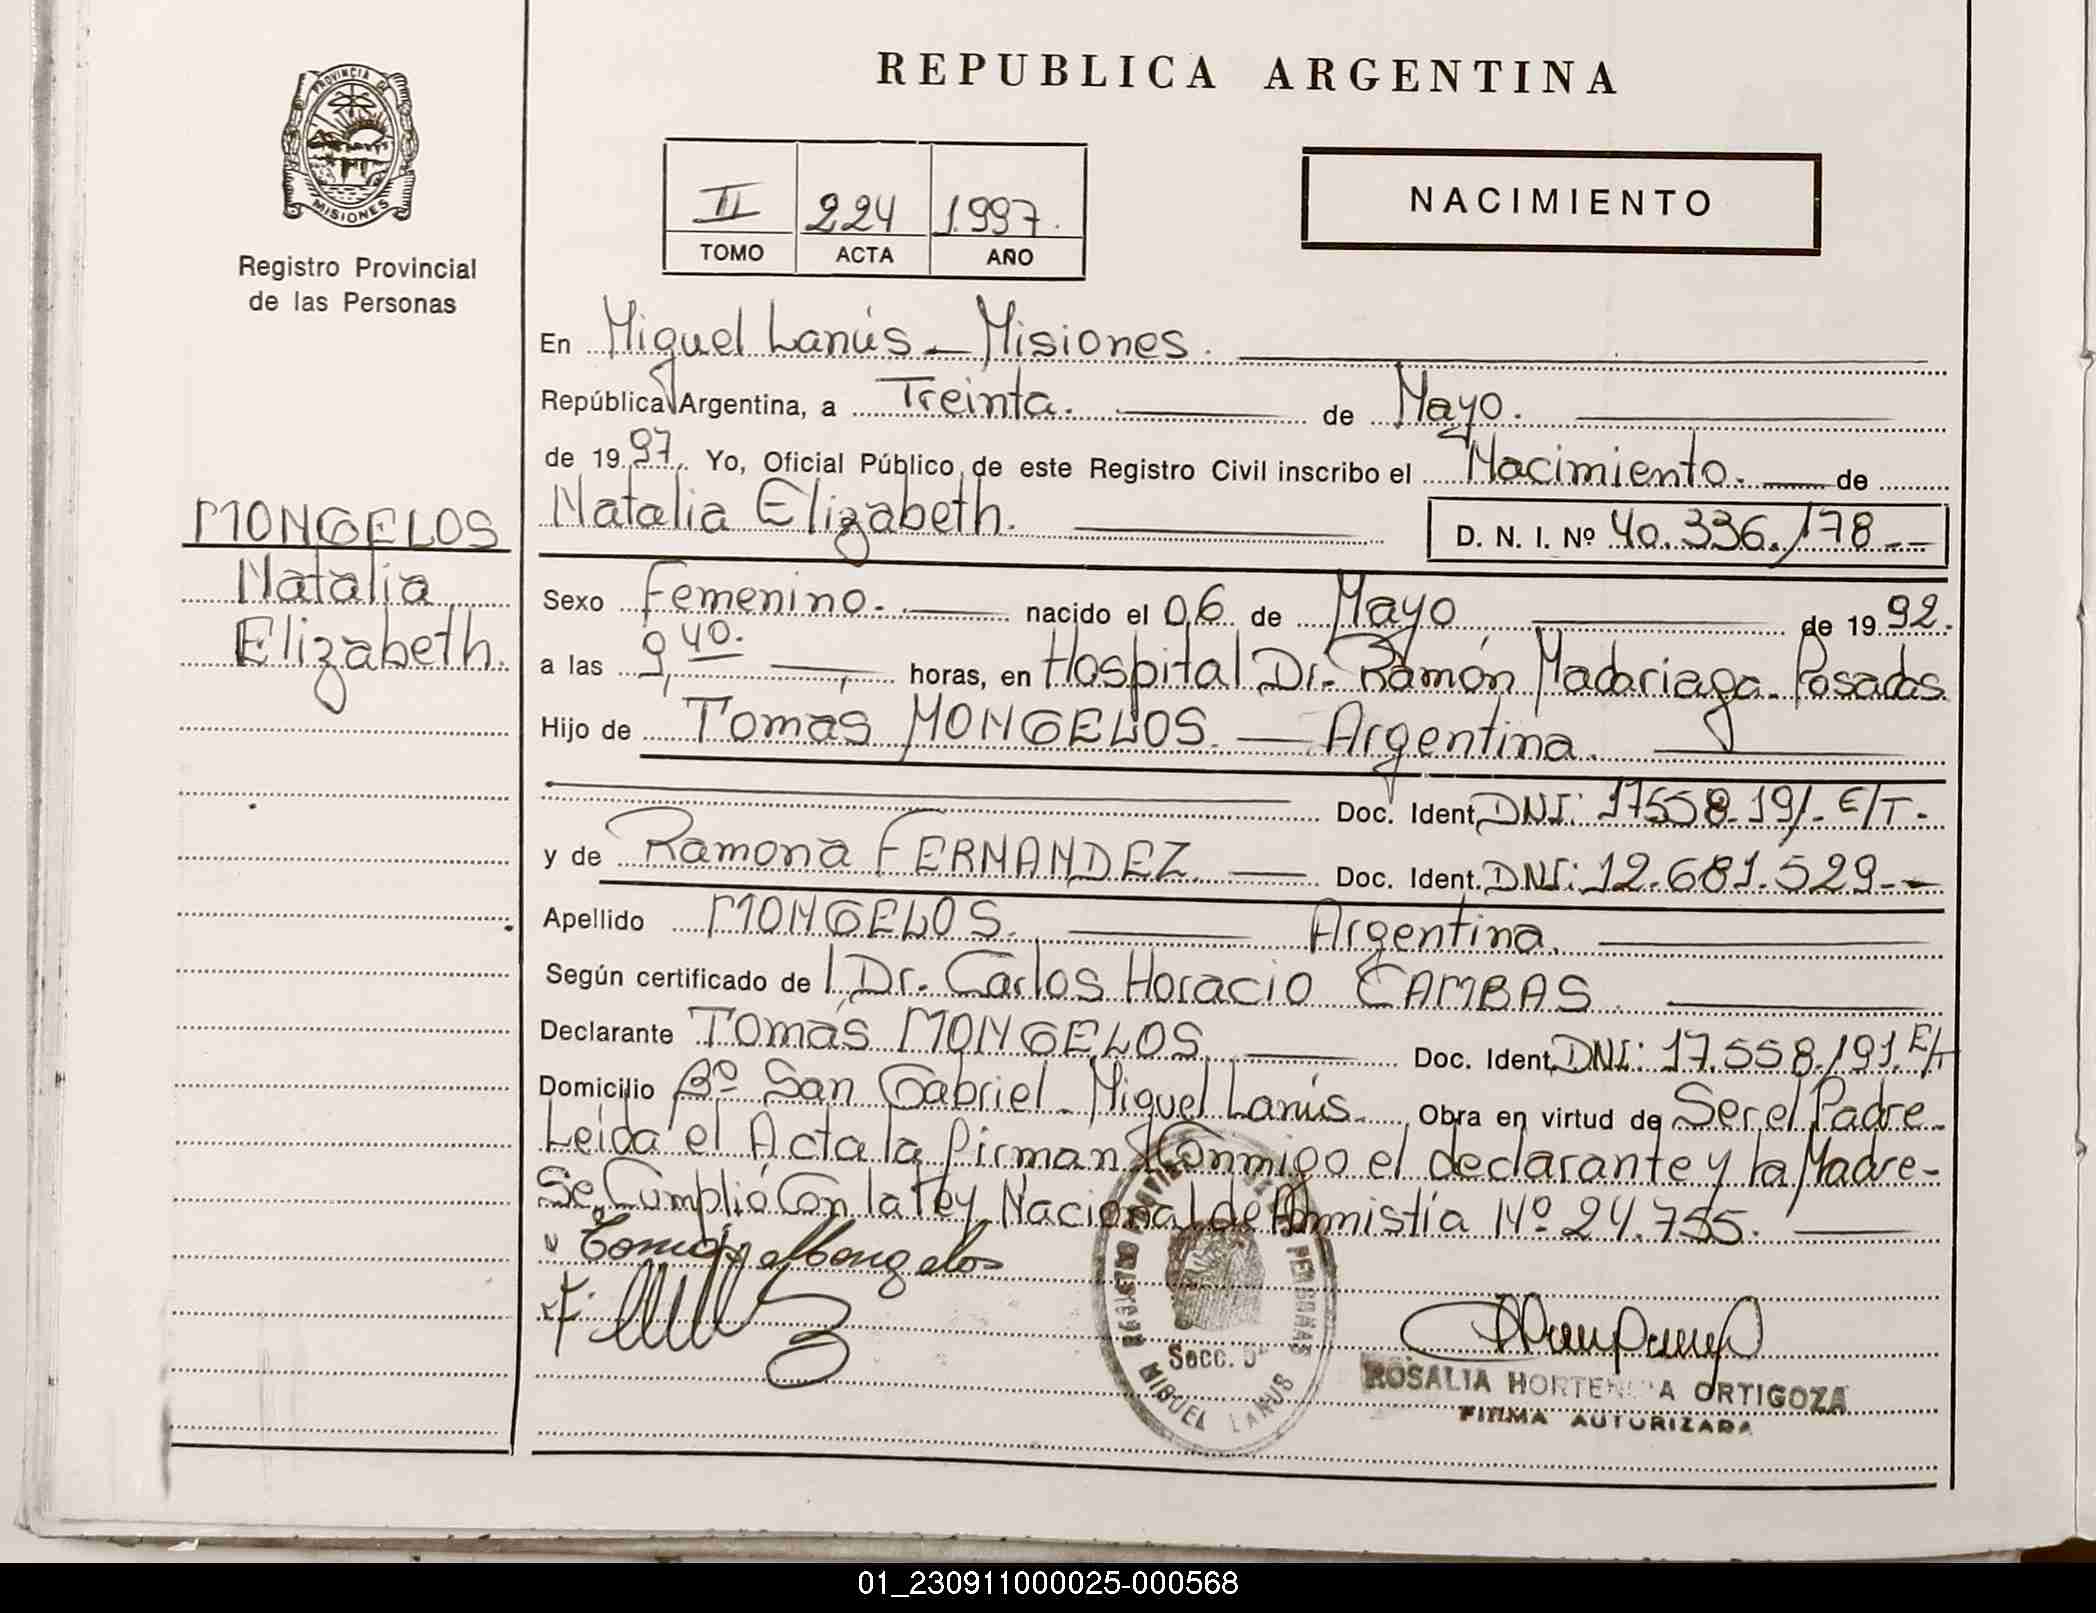 REPUBLICA ARGENTINA
PROVINCIA DE
MISIONES
Registro Provincial
de las Personas
II 224 1.997.
TOMO ACTA AÑO
NACIMIENTO
En Miguel Lanús - Misiones.
República Argentina, a Treinta. de Mayo.
de 1997. Yo, Oficial Público de este Registro Civil inscribo el Nacimiento. de
MONGELOS
Natalia
Elizabeth.
Natalia Elizabeth. D. N. I. Nº 40.336.178--
Sexo Femenino. nacido el 06 de Mayo de 1992.
a las 9,40. horas, en Hospital Dr. Ramón Madariaga - Posadas.
Hijo de Tomás MONGELOS. Argentina.
Doc. Ident. DNI: 17558.191- E/T.-
y de Ramona FERNANDEZ. Doc. Ident. DNI: 12.681.529.-
Apellido MONGELOS. Argentina.
Según certificado de Dr. Carlos Horacio CAMBAS
Declarante Tomás MONGELOS. Doc. Ident. DNI: 17.558.191. E/T
Domicilio Bº San Gabriel - Miguel Lanús. Obra en virtud de Ser el Padre.
Leída el Acta la firman Conmigo el declarante y la Madre-
Se Cumplió Con la Ley Nacional de Amnistía Nº 24.755.
Tomás Mongelos
Secc. 5ª
MIGUEL LANUS
PERSONAS
ROSALIA HORTENCIA ORTIGOZA
FIRMA AUTORIZADA
01_230911000025-000568